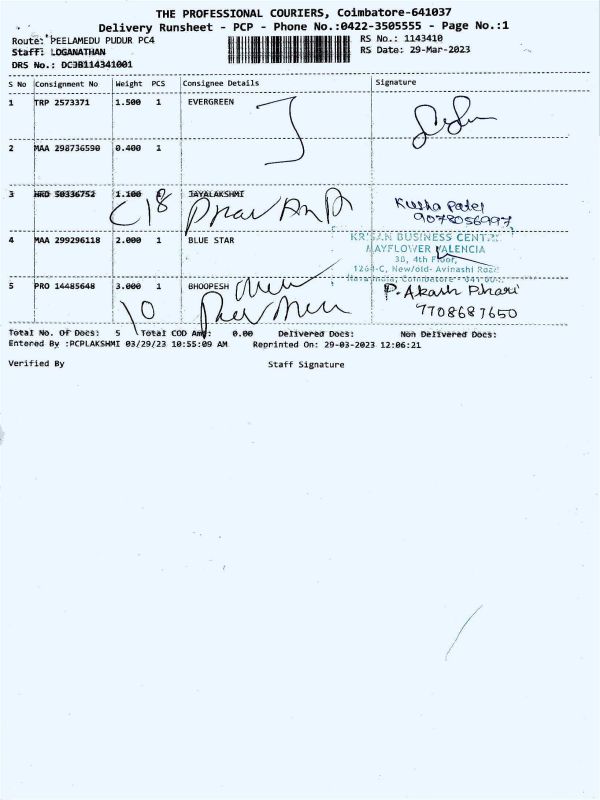 THE PROFESSIONAL COURIERS, Coimbatore-641037
Delivery Runsheet - PCP - Phone No.:0422-3505555 - Page No.:1
Route: PEELAMEDU PUDUR PC4
RS No.: 1143410
Staff: LOGANATHAN
RS Date: 29-Mar-2023
DRS No.: DC3B114341001
S No Consignment No Weight PCS Consignee Details Signature
1 TRP 2573371 1.500 1 EVERGREEN
2 MAA 298736590 0.400 1
3 HRD 50336752 1.100 JAYALAKSHMI
C18
Kusha Patel
9078056997
4 MAA 299296118 2.000 1 BLUE STAR
KRISAN BUSINESS CENT
MAYFLOWER VALENCIA
3B, 4th Floor,
1264-C, New/old- Avinashi Road
Coimbatore - 641 004.
5 PRO 14485648 3.000 1 BHOOPESH
P. Akash Phari
7708687650
10
Total No. Of Docs: 5 Total COD Amt: 0.00 Delivered Docs: Non Delivered Docs:
Entered By :PCPLAKSHMI 03/29/23 10:55:09 AM Reprinted On: 29-03-2023 12:06:21
Verified By Staff Signature